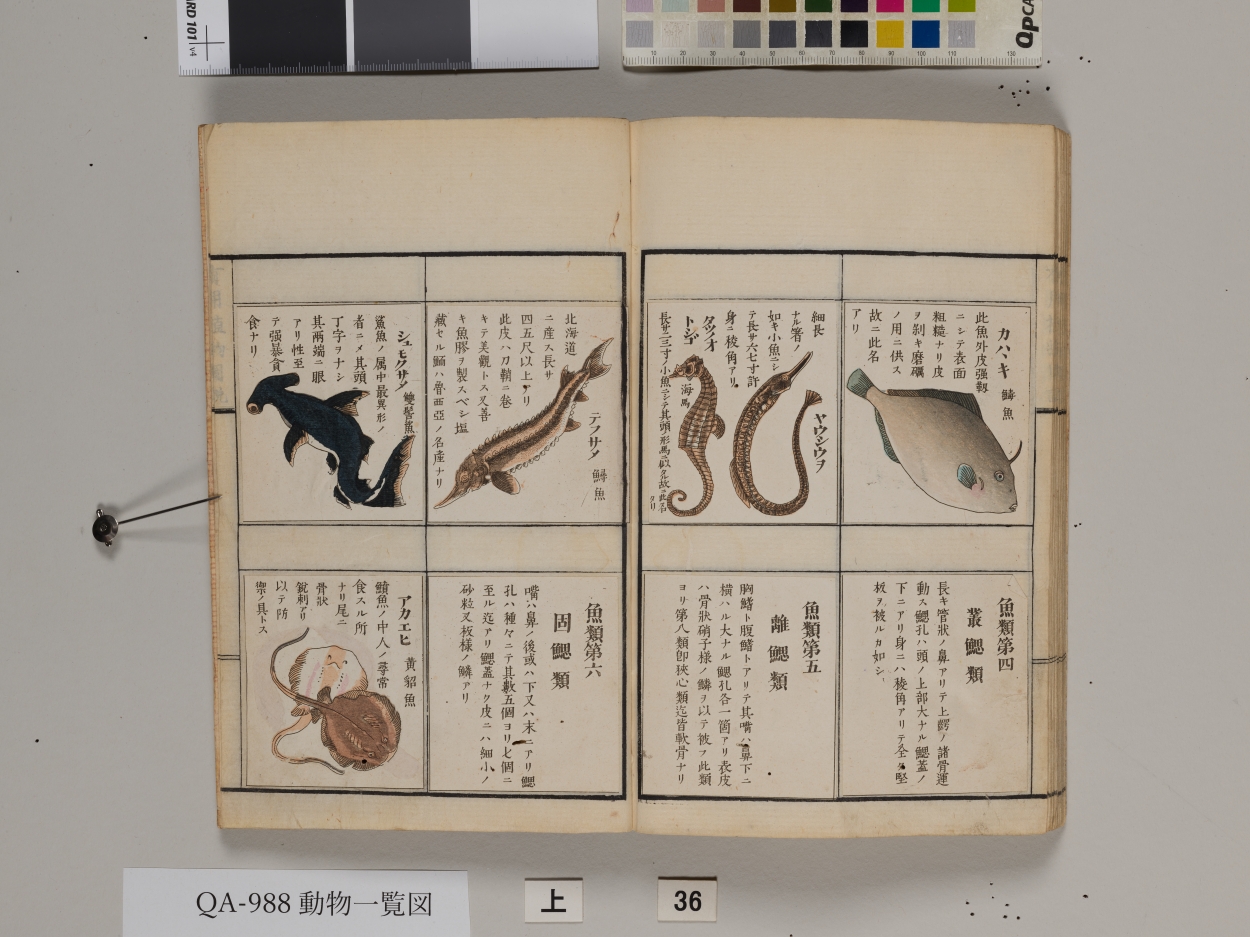 カハハキ 鱄魚
此魚外皮强靱
ニシテ表面
粗糙ナリ皮
ヲ剝キ磨礪
ノ用ニ供ス
故ニ此名
アリ
魚類第四
叢鰓類
長キ管狀ノ鼻アリテ上齶ノ諸骨運
動ス鰓孔ハ頭ノ上部大ナル鰓蓋ノ
下ニアリ身ニハ稜角アリテ全ク堅
板ヲ被ルカ如シ
ヤウジウヲ
細長
ナル箸ノ
如キ小魚ニシ
テ長サ六七寸許
身ニ稜角アリ
タツノオ
トシゴ
海馬
長サ二三寸ノ小魚ニシテ其頭ノ形馬ニ似タル故ニ此名
アリ
魚類第五
離鰓類
胸鰭ト腹鰭トアリテ其嘴ハ鼻下ニ
橫ハル大ナル鰓孔各一箇アリ表皮
ハ骨狀硝子樣ノ鱗ヲ以テ被フ此類
ヨリ第八類卽狹心類迄皆軟骨ナリ
テフサメ 鱘魚
北海道
ニ產ス長サ
四五尺以上アリ
此皮ハ刀鞘ニ卷
キテ美觀トス又善
キ魚膠ヲ製スベシ塩
藏セル鮞ハ魯西亞ノ名產ナリ
魚類第六
固鰓類
嘴ハ鼻ノ後或ハ下又ハ末ニアリ鰓
孔ハ種々ニテ其數五個ヨリ七個ニ
至ル迄アリ鰓蓋ナク皮ニハ細小ノ
砂粒又板樣ノ鱗アリ
シュモクサメ 雙髻鯊
鯊魚ノ属中最異形ノ
者ニメ其頭
丁字ヲナシ
其兩端ニ眼
アリ性至
テ强暴貪
食ナリ
アカエヒ 黃貂魚
鱝魚ノ中人ノ尋常
食スル所
ナリ尾ニ
骨狀
銳刺アリ
以テ防
禦ノ具トス
QA-988 動物一覧図
上
36
QPCA
RD 101 v4